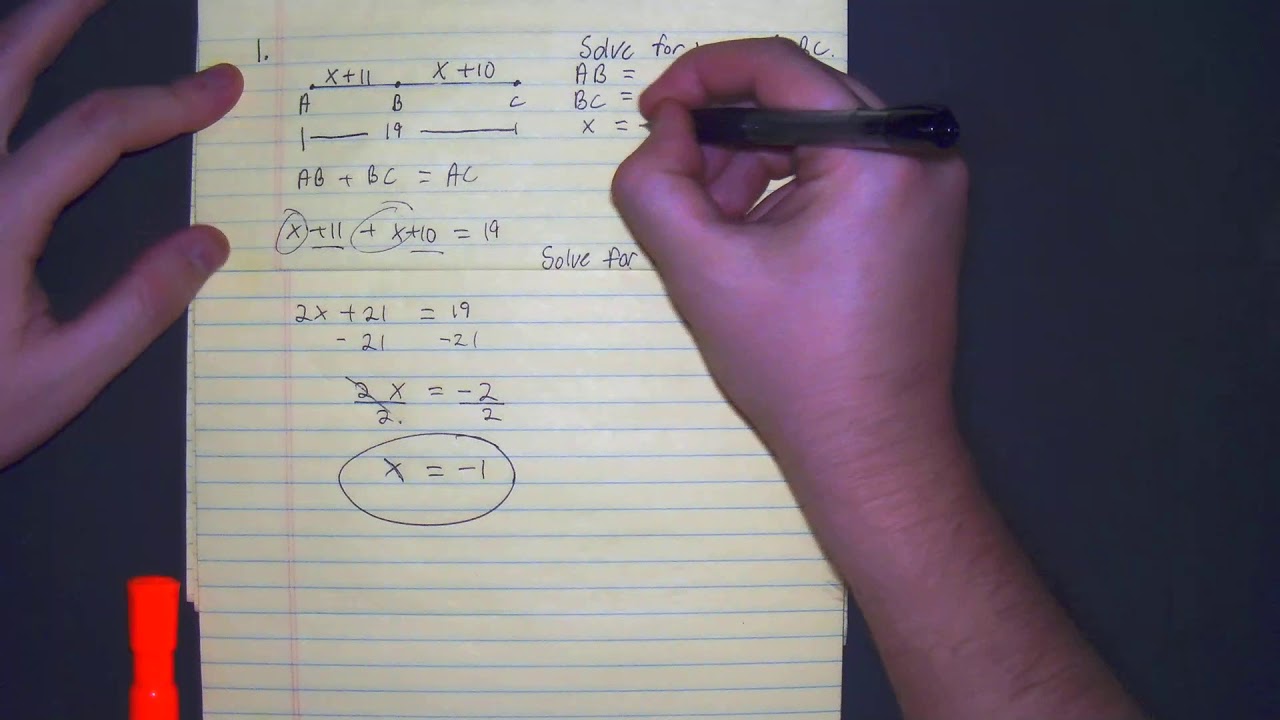 1.
x+11 x+10
A B C
19
Solve for BC.
AB =
BC =
x = -
AB + BC = AC
x+11 + x+10 = 19
Solve for
2x + 21 = 19
- 21 -21
2 x = -2
2. 2
x = -1